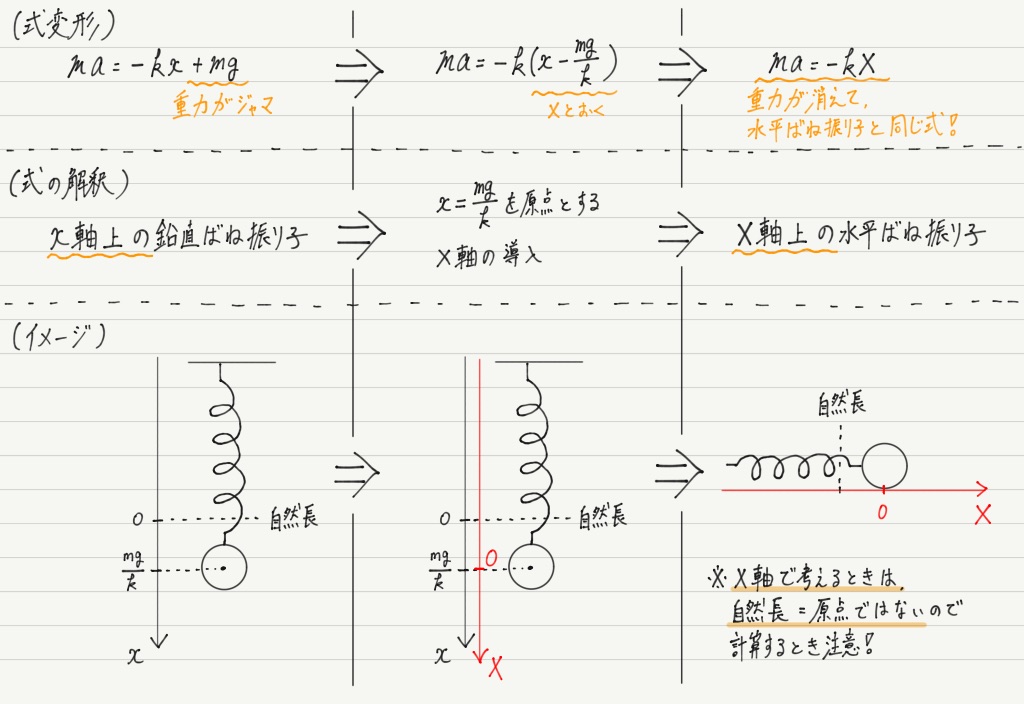 (式変形)
ma = -kx + mg
重力がジャマ
⇒
ma = -k(x - mg/k)
Xとおく
⇒
ma = -kX
重力が消えて、
水平ばね振り子と同じ式!
(式の解釈)
x軸上の鉛直ばね振り子
⇒
x = mg/k を原点とする
X軸の導入
⇒
X軸上の水平ばね振り子
(イメージ)
0
自然長
mg/k
x
⇒
0
自然長
mg/k
0
x
X
⇒
自然長
0
X
※ X軸で考えるときは、
自然長=原点ではないので
計算するとき注意!